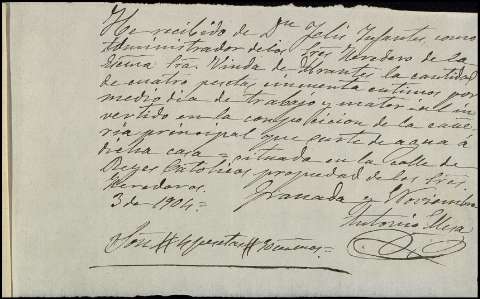 He recibido de Dn Felix Infantes, como
Administrador de los Sres Heredero de la
Exema Sra. Viuda de Arantes la cantidad
de cuatro pesetas, cincuenta centimos por
medio dia de trabajo y material in
vertido en la composicion de la cañe
ria principal que surte de agua á
dicha casa situada en la calle de
Reyes Catolicos propiedad de los Sres.
Herederos. Granada y Noviembre
3 de 1904 =
Antonio Mesa
Son # 4 pesetas #